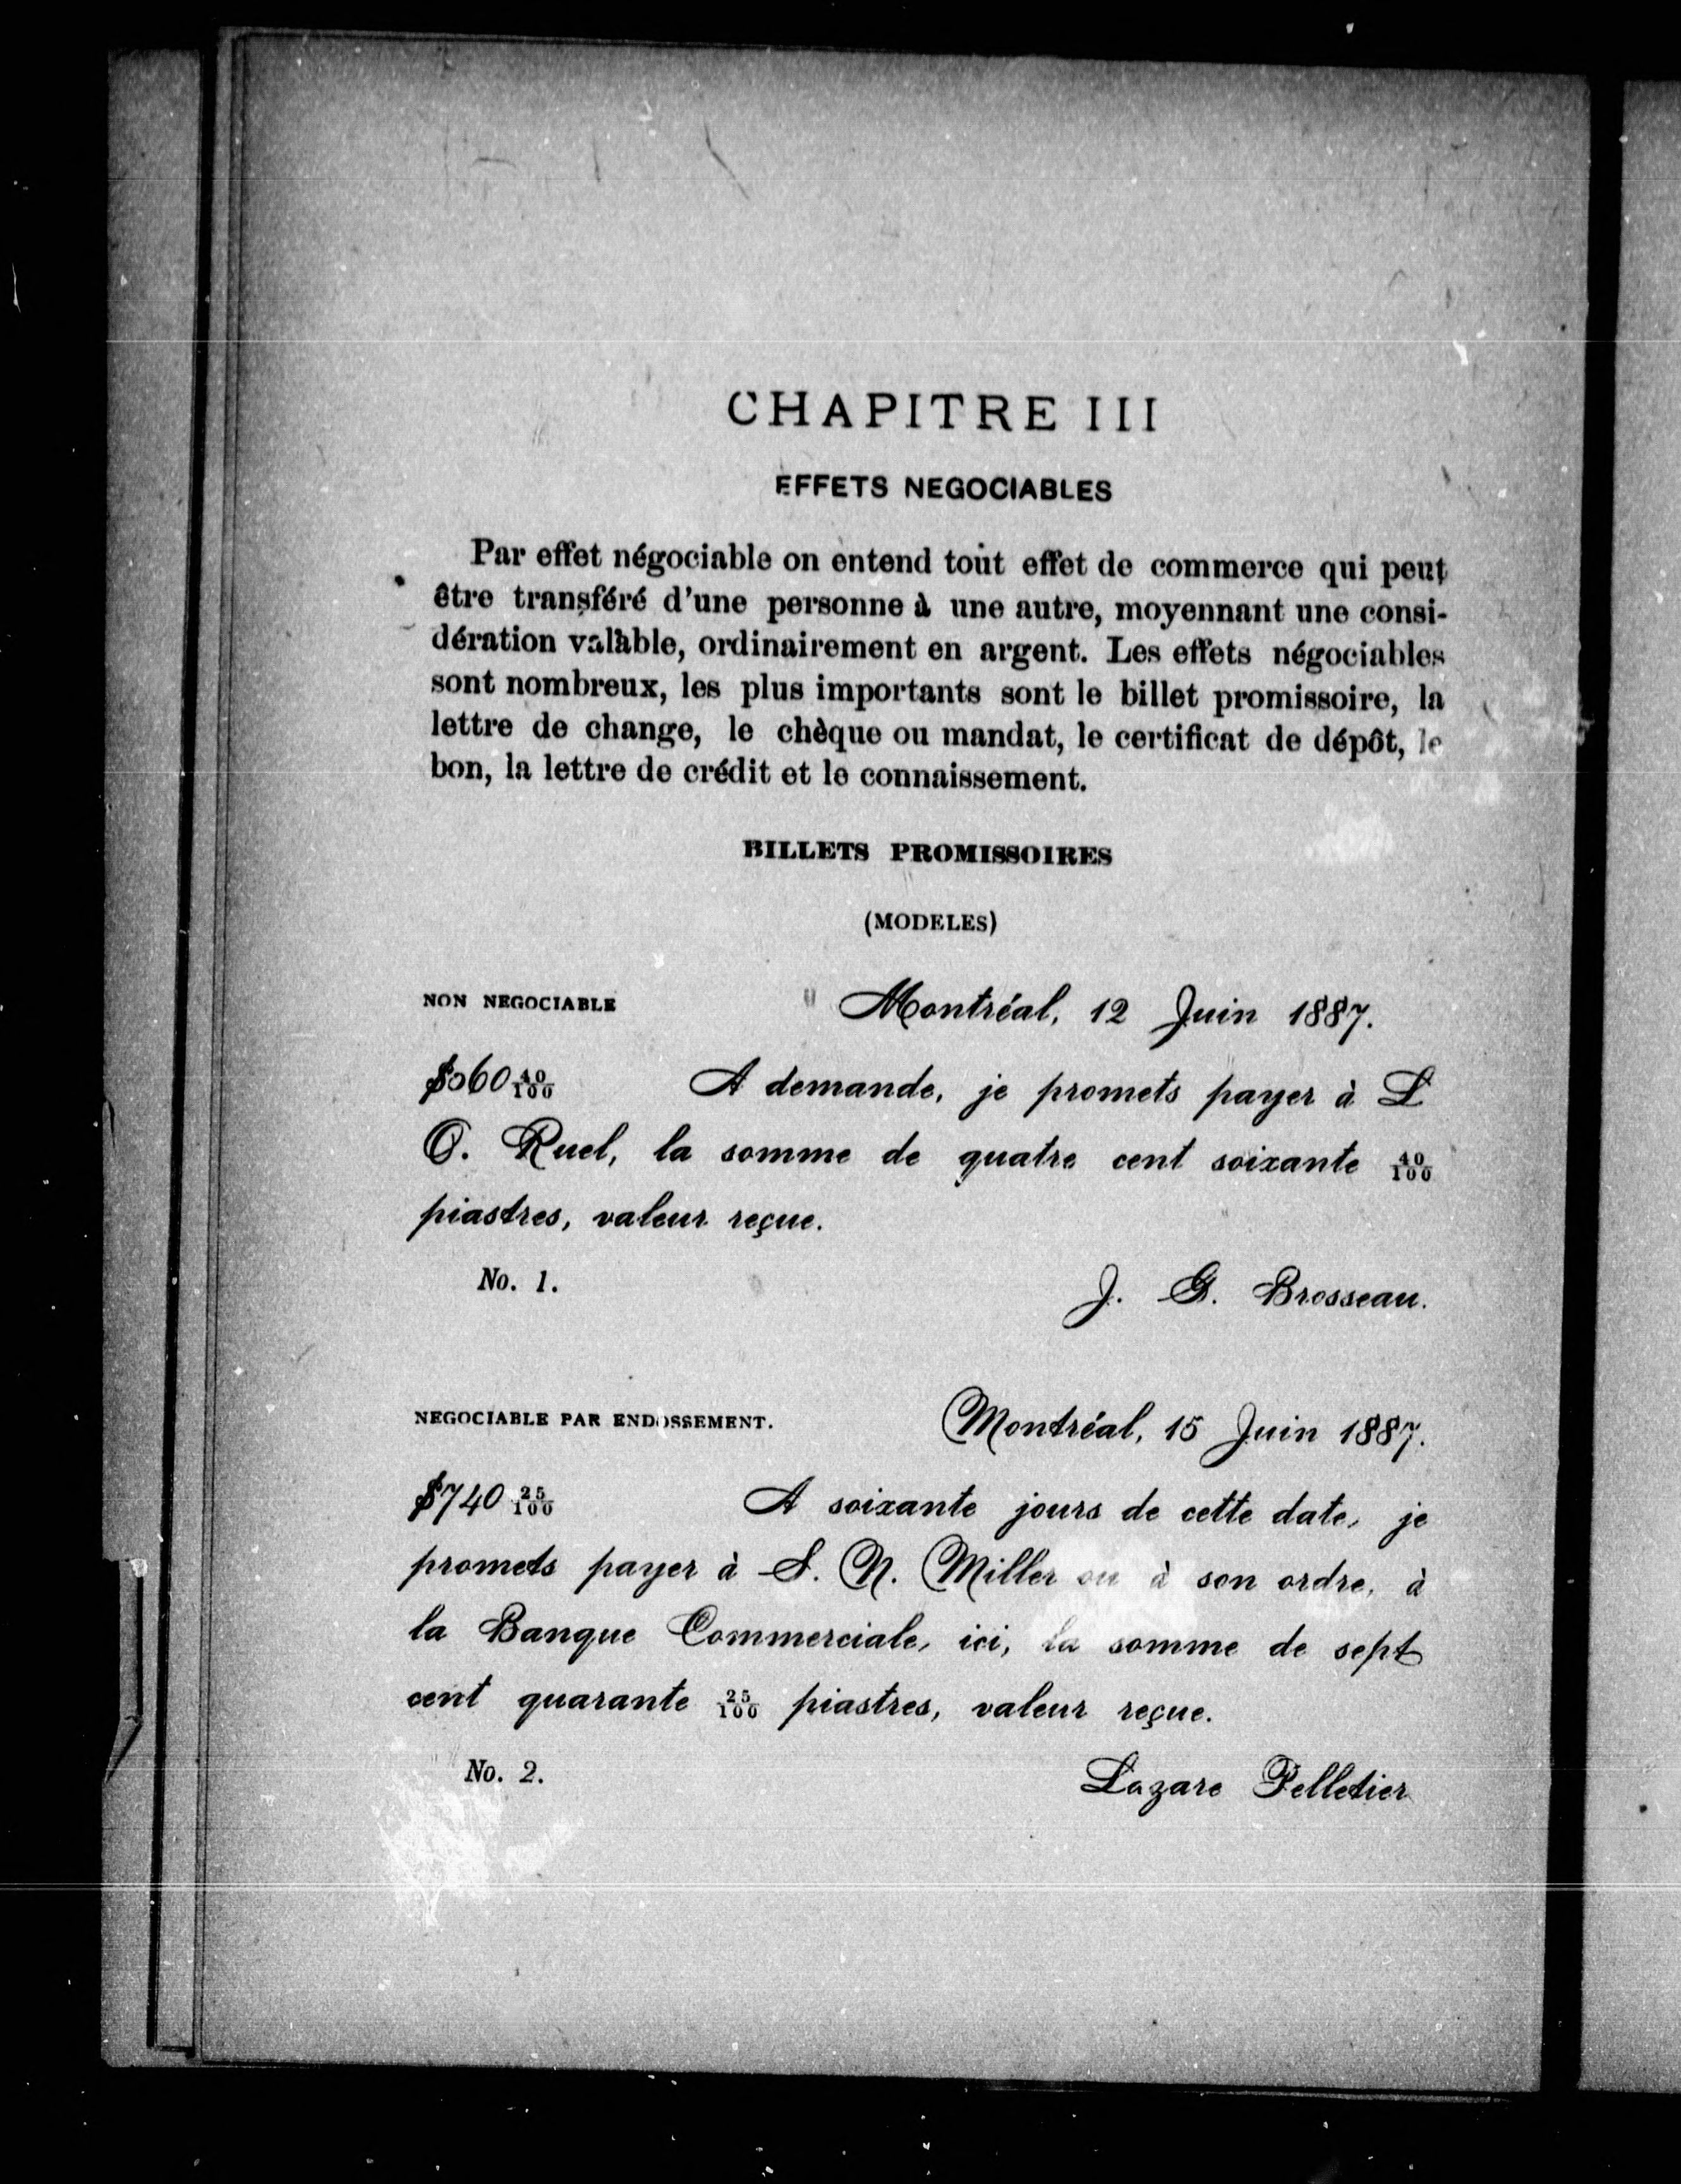 CHAPITRE III
EFFETS NEGOCIABLES
Par effet négociable on entend tout effet de commerce qui peut
être transféré d'une personne à une autre, moyennant une consi-
dération valable, ordinairement en argent. Les effets négociables
sont nombreux, les plus importants sont le billet promissoire, la
lettre de change, le chèque ou mandat, le certificat de dépôt, le
bon, la lettre de crédit et le connaissement.
BILLETS PROMISSOIRES
(MODELES)
NON NEGOCIABLE Montréal, 12 Juin 1887.
40/100 A demande, je promets payer à L
O. Ruel, la somme de quatre cent soixante 40/100
piastres, valeur reçue.
No. 1. J. G. Brosseau.
NEGOCIABLE PAR ENDOSSEMENT. Montréal, 15 Juin 1887.
$740 25/100 A soixante jours de cette date, je
promets payer à S. N. Miller ou à son ordre, à
la Banque Commerciale, ici, la somme de sept
cent quarante 25/100 piastres, valeur reçue.
No. 2. Lazare Pelletier